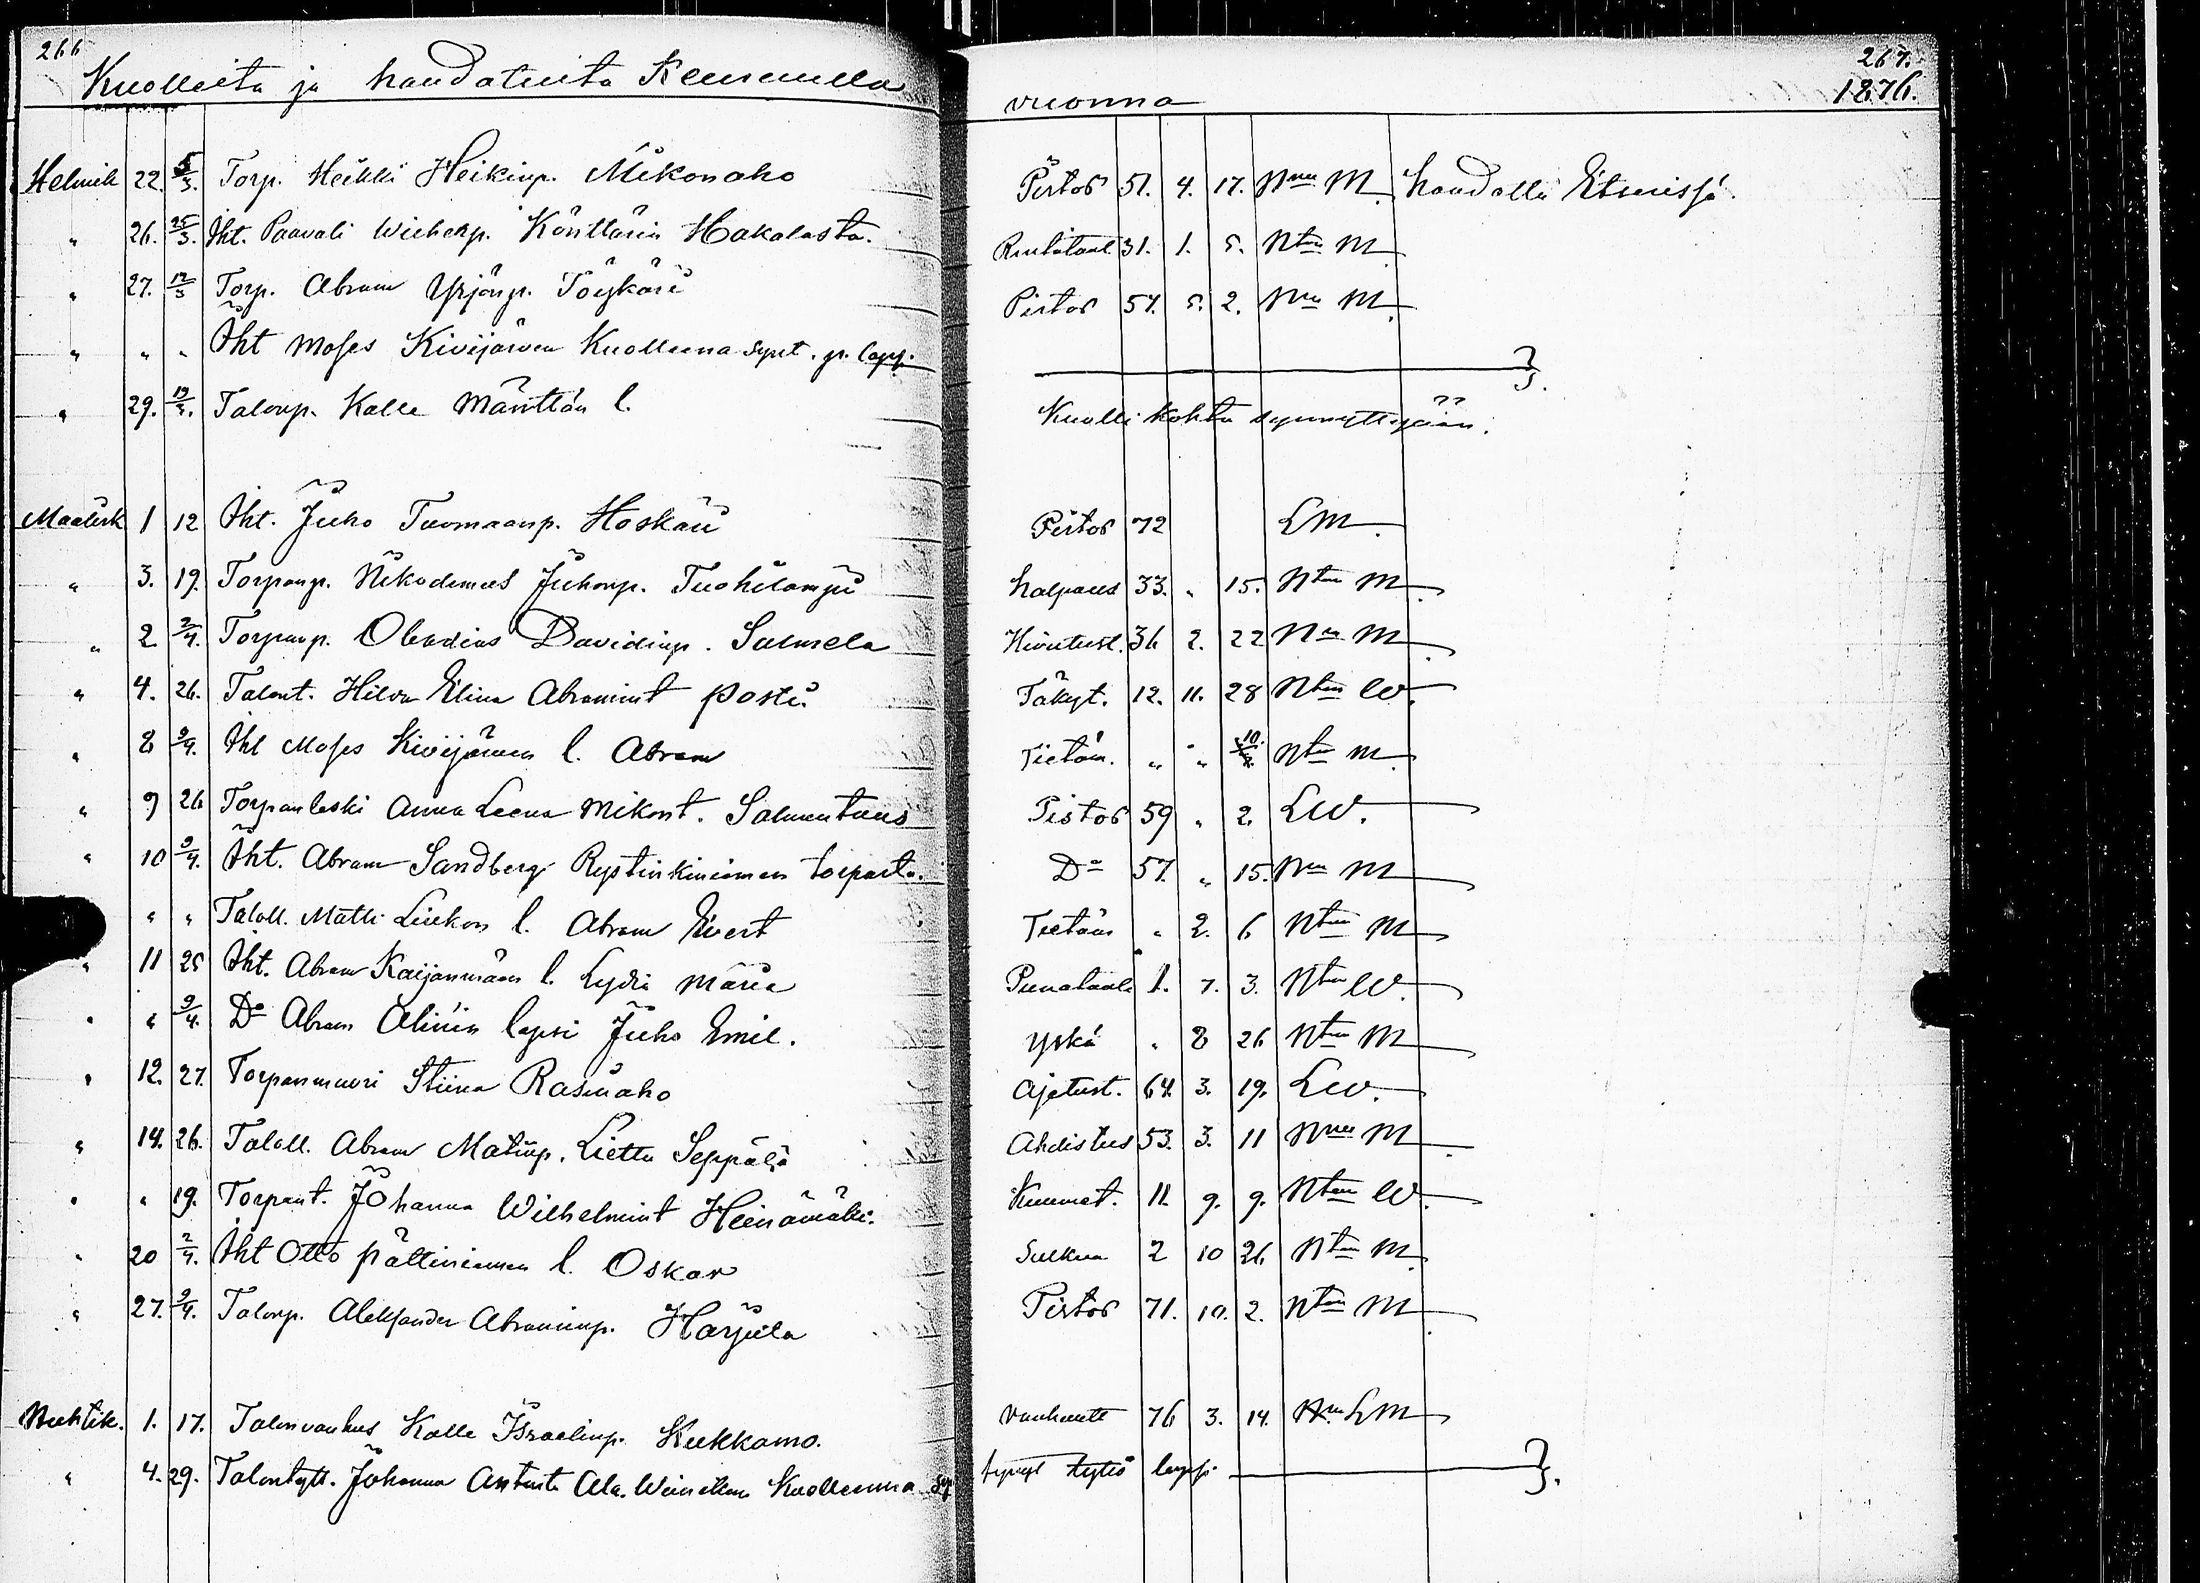 266
Kuolleita ja haudatuita Keuruulla
267.
vuonna 1876.
Helmik 22. 5/3. Torp. Heikki Heikinp. Mikonaho Pistos 51. 4. 17. Nnu M. haudattu Etserissä.
" 26. 25/3. Iht. Paavali Wilhelmp. Könttärin Hakalasta. Rintataut 31. 1. 5. Ntm M.
" 27. 12/3 Torp. Abram Yrjönp. Töykäri Pistos 57. 5. 2. Nm M.
" " " Iht Moses Kivijärven Kuolleena synt. p. laps.
" 29. 19/3. Talonp. Kalle Mänttän l. Kuolli kohta synnyttyään.
Maalisk 1 12 Iht. Juho Tuomaanp. Hoskari Pistos 72 LM.
" 3. 19. Torpanp. Nikodemus Juhonp. Tuohilampi halpaus 33. " 15. Ntm M.
" 2 2/4. Torpanp. Obadias Davidinp. Salmela 36 2. 22 Nm M.
" 4. 26. Talont. Hilda Elina Abramint Posti Täkyt. 12. 11. 28 Ntm W.
" 8 9/4. Iht Moses Kivijärven l. Abram Tietäm. " " 10. Ntm M.
" 9 26 Torpanleski Anna Leena Mikont. Salmentaus Pistos 59 " 2. LW.
" 10 9/4. Iht. Abram Sandberg Rystinkiniemen torpasta. Do 57. " 15. Nm M
" " Taloll. Matti Liukon l. Abram Evert Tietäm " 2. 6 Ntm M
" 11 25 Iht. Abram Kaijanmäen l. Lydia Maria Punataut. 1. 7. 3. Ntm W.
" " 9/4. Do Abram Alinin lapsi Juho Emil. Yskä " 8 26 Ntm M
" 12. 27. Torpanmuori Stiina Rasinaho Ajetust. 64. 3. 19. LW.
" 14. 26. Taloll. Abram Matinp. Liettu Seppälä Ahdistus 53. 3. 11 Nnu M
" " 19. Torpant. Johanna Wilhelmint Heinämäki. Kuumet. 11. 9. 9. Ntm W.
" 20 2/4. Iht Otto Pältiniemen l. Oskar 2 10 26 Ntm M.
" 27. 9/4. Talonp. Aleksander Abraminp. Harjula Pistos 71. 10. 2. Ntm M
Huhtik. 1. 17. Talonvanhus Kalle Israelinp. Kukkamo. Vanhuutt 76 3. 14. LM
" 4. 29. Talontytt. Johanna Antint Ala. Kuolleena sy synyt tyttö lapsi